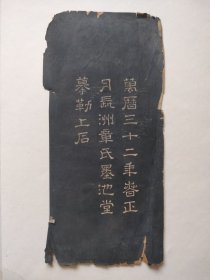 萬曆三十二年春正
月長洲章氏墨池堂
摹勒上石